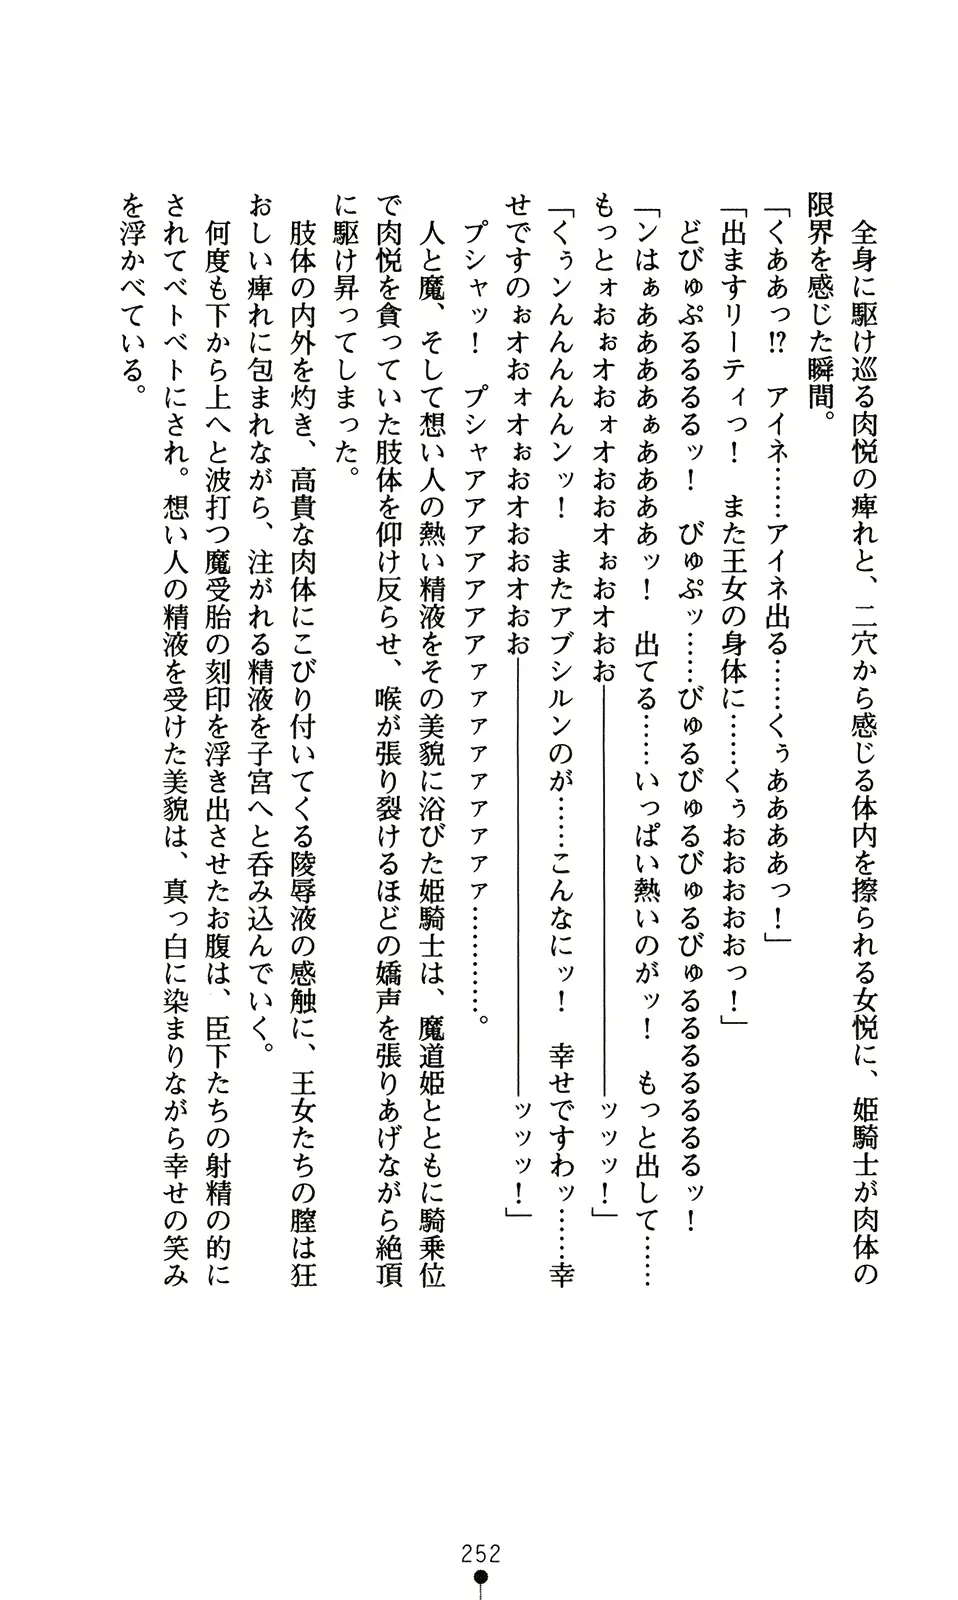 全身に駆け巡る肉悦の痺れと、二穴から感じる体内を擦られる女悦に、姫騎士が肉体の
限界を感じた瞬間。
「くああっ!?　アイネ……アイネ出る……くぅああああっ！」
「出ますリーティっ！　また王女の身体に……くぅおおおおおっ！」
　どびゅぷるるるるッ！　びゅぷッ……びゅるびゅるびゅるびゅるるるるるるッ！
「ンはぁああああぁああああッ！　出てる……いっぱい熱いのがッ！　もっと出して……
もっとォおぉオおォオおおオぉおオおぉ――――――――――ッッッ！」
「くぅンんんんんンッ！　またアブシルンのが……こんなにッ！　幸せですわッ……幸
せですのぉオおォオぉおオおおオおぉ――――――――――ッッッ！」
　プシャッ！　プシャアアアアアアアァァァァァァ…………。
　人と魔、そして想い人の熱い精液をその美貌に浴びた姫騎士は、魔道姫とともに騎乗位
で肉悦を貪っていた肢体を仰け反らせ、喉が張り裂けるほどの嬌声を張りあげながら絶頂
に駆け昇ってしまった。
　肢体の内外を灼き、高貴な肉体にこびり付いてくる陵辱液の感触に、王女たちの膣は狂
おしい痺れに包まれながら、注がれる精液を子宮へと呑み込んでいく。
　何度も下から上へと波打つ魔受胎の刻印を浮き出させたお腹は、臣下たちの射精の的に
されてベトベトにされ。想い人の精液を受けた美貌は、真っ白に染まりながら幸せの笑み
を浮かべている。
252